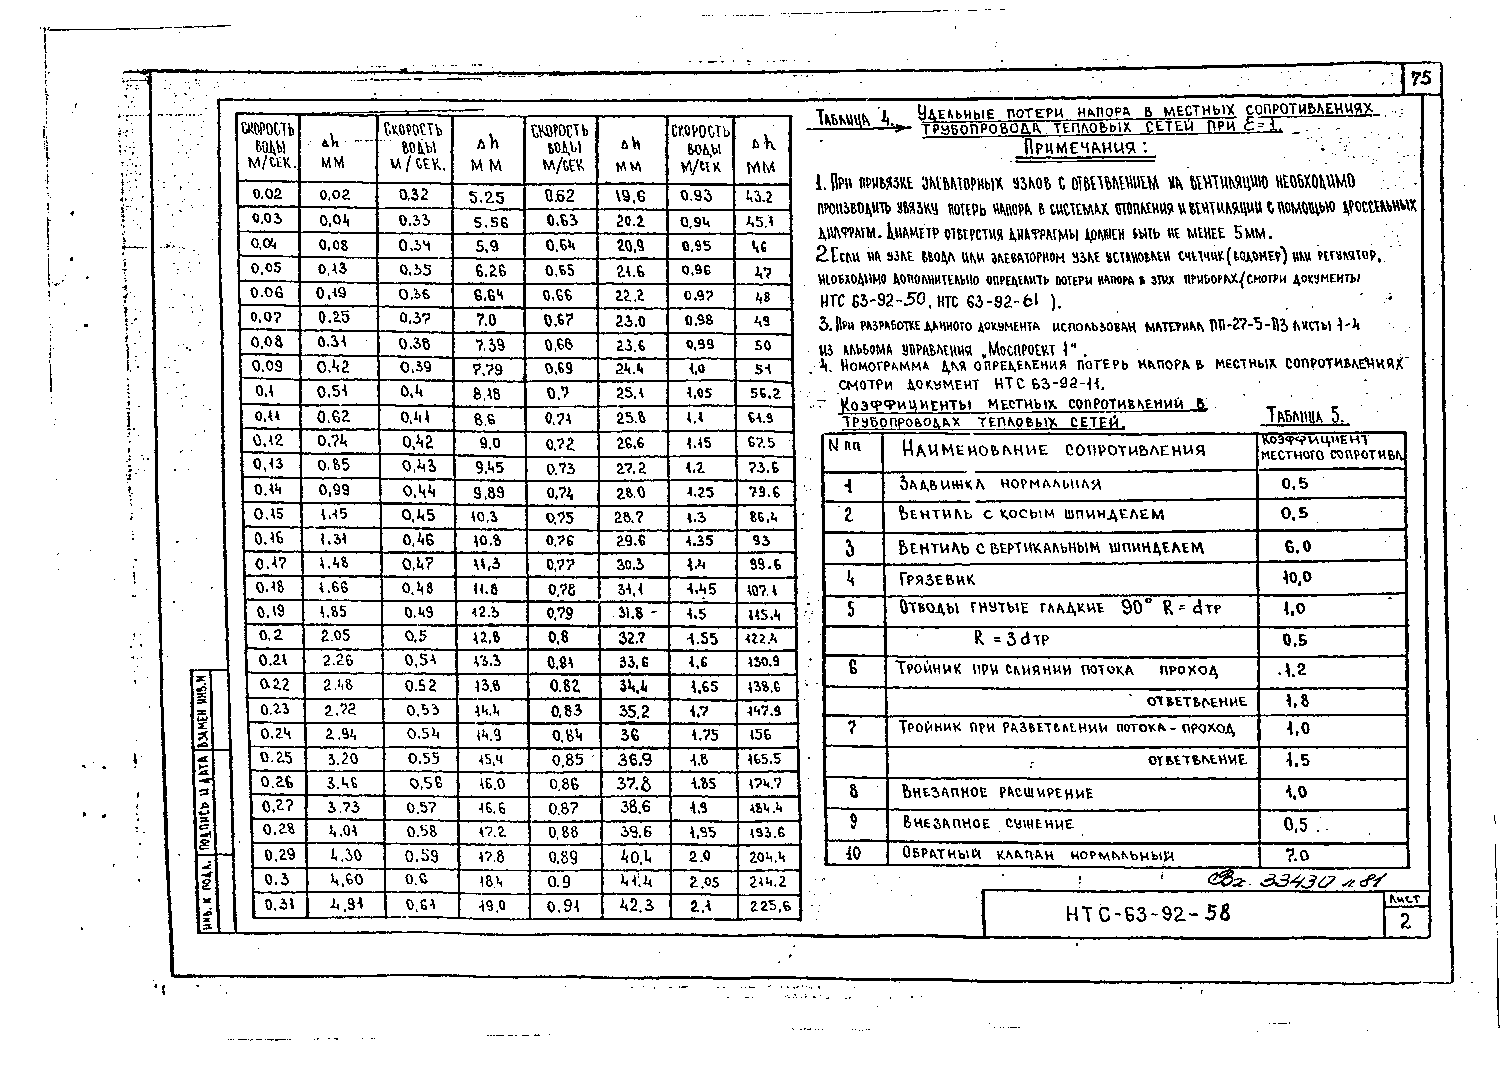 75
СКОРОСТЬ ВОДЫ М/СЕК. Δh ММ СКОРОСТЬ ВОДЫ М/СЕК. Δh ММ СКОРОСТЬ ВОДЫ М/СЕК Δh ММ СКОРОСТЬ ВОДЫ М/СЕК Δh ММ
0.02 0,02 0,32 5.25 0.62 19,6 0.93 43.2
0.03 0,04 0.33 5.56 0.63 20.2 0,94 45,1
0,04 0,08 0.34 5,9 0,64 20,9 0.95 46
0,05 0,13 0,35 6.26 0,65 21.6 0,96 47
0.06 0,19 0,36 6.64 0.66 22.2 0.97 48
0,07 0.25 0,37 7.0 0,67 23.0 0.98 49
0,08 0.31 0.38 7.39 0,68 23.6 0,99 50
0.09 0.42 0.39 7.79 0,69 24.4 1,0 51
0,1 0.51 0,4 8,18 0,7 25.1 1,05 56,2
0,11 0.62 0,41 8,6 0,71 25.8 1,1 61.9
0,12 0,74 0,42 9,0 0,72 26.6 1.15 67.5
0,13 0.85 0,43 9,45 0.73 27.2 1.2 73.6
0.14 0,99 0,44 9,89 0,74 28.0 1.25 79.6
0,15 1.15 0,45 10,3 0,75 28.7 1.3 86,4
0.16 1.31 0,46 10.8 0,76 29.6 1.35 93
0.17 1.48 0,47 11,3 0,77 30.3 1.4 99.6
0.18 1.66 0,48 11.8 0,78 31,1 1.45 107.1
0,19 1.85 0.49 12.3 0,79 31.8 1.5 115,4
0.2 2.05 0,5 12,8 0,8 32.7 1.55 122.4
0.21 2.26 0,51 13.3 0,81 33,6 1,6 130.9
0.22 2.48 0.52 13.8 0.82 34,4 1,65 138.6
0.23 2.72 0,53 14.4 0,83 35,2 1,7 147.9
0.24 2.94 0.54 14.9 0,84 36 1.75 156
0.25 3.20 0.55 15,4 0,85 36.9 1.8 165.5
0.26 3.46 0,56 16.0 0,86 37.8 1.85 174.7
0.27 3.73 0.57 16.6 0.87 38,6 1.9 184.4
0.28 4,01 0.58 17.2 0,88 39.6 1,95 193.6
0.29 4.30 0.59 17.8 0,89 40,4 2.0 204.4
0.3 4,60 0.6 18,4 0.9 41.4 2,05 214.2
0.31 4,91 0,61 19,0 0.91 42.3 2,1 225,6
ТАБЛИЦА 4. УДЕЛЬНЫЕ ПОТЕРИ НАПОРА В МЕСТНЫХ СОПРОТИВЛЕНИЯХ
ТРУБОПРОВОДА ТЕПЛОВЫХ СЕТЕЙ ПРИ Ɛ=1.
ПРИМЕЧАНИЯ:
1. ПРИ ПРИВЯЗКЕ ЭЛЕВАТОРНЫХ УЗЛОВ С ОТВЕТВЛЕНИЕМ НА ВЕНТИЛЯЦИЮ НЕОБХОДИМО
ПРОИЗВОДИТЬ УВЯЗКУ ПОТЕРЬ НАПОРА В СИСТЕМАХ ОТОПЛЕНИЯ И ВЕНТИЛЯЦИИ С ПОМОЩЬЮ ДРОССЕЛЬНЫХ
ДИАФРАГМ. ДИАМЕТР ОТВЕРСТИЯ ДИАФРАГМЫ ДОЛЖЕН БЫТЬ НЕ МЕНЕЕ 5ММ.
2. ЕСЛИ НА УЗЛЕ ВВОДА ИЛИ ЭЛЕВАТОРНОМ УЗЛЕ УСТАНОВЛЕН СЧЕТЧИК (ВОДОМЕР) ИЛИ РЕГУЛЯТОР,
НЕОБХОДИМО ДОПОЛНИТЕЛЬНО ОПРЕДЕЛИТЬ ПОТЕРИ НАПОРА В ЭТИХ ПРИБОРАХ/СМОТРИ ДОКУМЕНТЫ
НТС 63-92-50, НТС 63-92-61 ).
3. ПРИ РАЗРАБОТКЕ ДАННОГО ДОКУМЕНТА ИСПОЛЬЗОВАН МАТЕРИАЛ ПП-27-5-ПЗ ЛИСТЫ 1-4
ИЗ АЛЬБОМА УПРАВЛЕНИЯ „МОСПРОЕКТ 1".
4. НОМОГРАММА ДЛЯ ОПРЕДЕЛЕНИЯ ПОТЕРЬ НАПОРА В МЕСТНЫХ СОПРОТИВЛЕНИЯХ
СМОТРИ ДОКУМЕНТ НТС 63-92-11.
КОЭФФИЦИЕНТЫ МЕСТНЫХ СОПРОТИВЛЕНИЙ В
ТРУБОПРОВОДАХ ТЕПЛОВЫХ СЕТЕЙ.
ТАБЛИЦА 5.
N ПП НАИМЕНОВАНИЕ СОПРОТИВЛЕНИЯ КОЭФФИЦИЕНТ МЕСТНОГО СОПРОТИВЛ.
1 ЗАДВИЖКА НОРМАЛЬНАЯ 0.5
2 ВЕНТИЛЬ С КОСЫМ ШПИНДЕЛЕМ 0,5
3 ВЕНТИЛЬ С ВЕРТИКАЛЬНЫМ ШПИНДЕЛЕМ 6.0
4 ГРЯЗЕВИК 10,0
5 ОТВОДЫ ГНУТЫЕ ГЛАДКИЕ 90° R = dТР 1,0
R = 3dТР 0,5
6 ТРОЙНИК ПРИ СЛИЯНИИ ПОТОКА ПРОХОД 1.2
ОТВЕТВЛЕНИЕ 1,8
7 ТРОЙНИК ПРИ РАЗВЕТВЛЕНИИ ПОТОКА - ПРОХОД 1,0
ОТВЕТВЛЕНИЕ 1.5
8 ВНЕЗАПНОЕ РАСШИРЕНИЕ 1,0
9 ВНЕЗАПНОЕ СУЖЕНИЕ 0,5
10 ОБРАТНЫЙ КЛАПАН НОРМАЛЬНЫЙ 7.0
33430 л 81
НТС-63-92-58
ЛИСТ
2
ИНВ. N ПОДЛ.
ПОДПИСЬ И ДАТА
ВЗАМЕН ИНВ.N